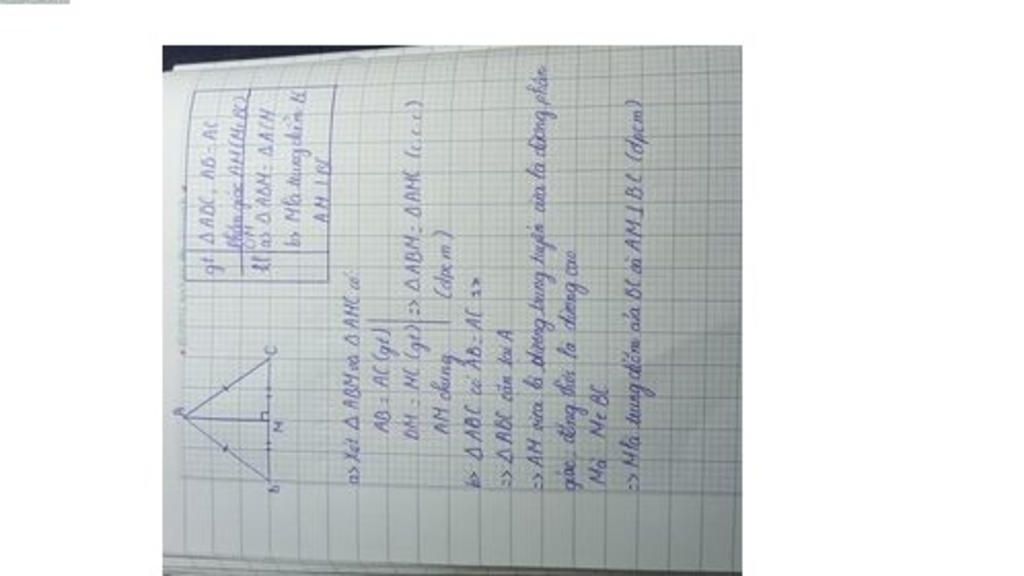 A
B
M
C
gt
ΔABC, AB = AC
phân giác AM (M∈BC)
kl
a> ΔABM = ΔACM
b> M là trung điểm BC
AM ⊥ BC
a> Xét ΔABM và ΔAMC có:
AB = AC (gt)
BM = MC (gt) => ΔABM = ΔAMC (c.c.c)
AM chung (đpcm)
b> ΔABC có AB = AC =>
=> ΔABC cân tại A
=> AM vừa là đường trung tuyến vừa là đường phân
giác, đồng thời là đường cao
Mà M∈BC
=> M là trung điểm của BC và AM ⊥ BC (đpcm)